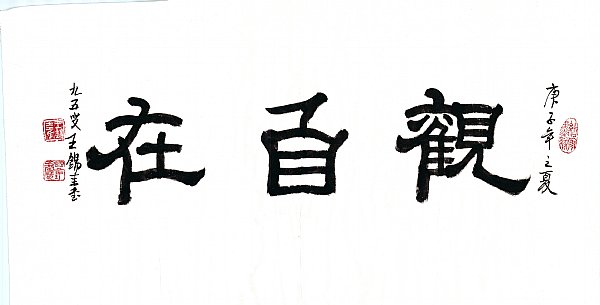 庚子年之夏
觀自在
九五叟王錫圭書